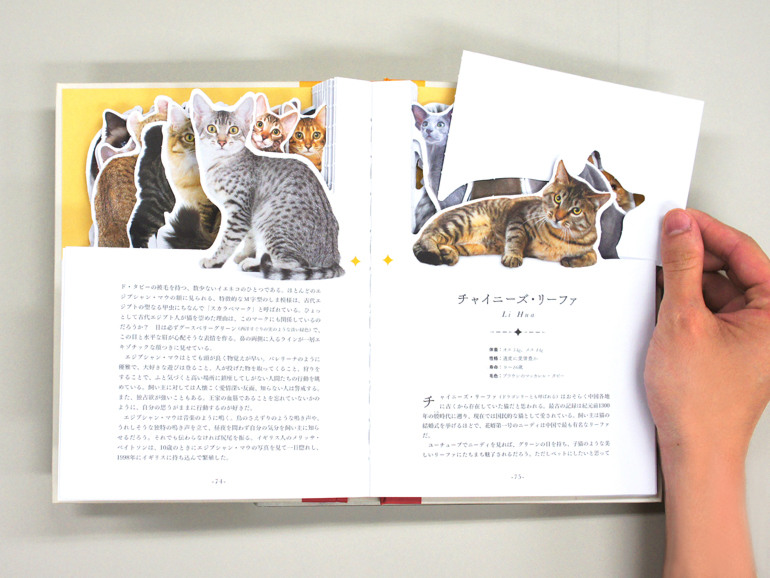 ド・タビーの被毛を持つ、数少ないイエネコのひとつである。ほとんどのエ
ジプシャン・マウの額に見られる、特徴的なM字型のしま模様は、古代エ
ジプトの聖なる甲虫にちなんで「スカラベマーク」と呼ばれている。ひょっ
として古代エジプト人が猫を崇めた理由は、このマークにも関係しているの
だろうか？ 目は必ずグースベリーグリーン
この目と水平な眉が心配そうな表情を作る。品の両側に入るラインが一層エ
キゾチックな顔つきに見せている。
エジプシャン・マウはとても頭が良く物覚えが早い。バレリーナのように
優雅で、大好きな遊びは登ること。人が投げた物を取ってくること。狩りを
することで、ふと気づくと高い場所に鎮座してしがない人間たちの行動を眺
めている。飼い主に対しては人懐こく愛情深い反面、知らない人は警戒する。
また、独占欲が強いこともある。王家の血筋であることを忘れていないかの
ように、自分の思うがままに行動するのが好きだ。
エジプシャン・マウは音楽のように鳴く。鳥のさえずりのような鳴き声や、
うれしそうな独特の鳴き声を立て、昼夜を問わず自分の気分を飼い主に知ら
せるだろう。それでも伝わなければ尻尾を振る。イギリス人のメリッサ・
ベイトソンは、10歳のときにエジプシャン・マウの写真を見て一目惚れし、
1998年にイギリスに持ち込んで繁殖した。
-74-
チャイニーズ・リーファ
Li Hua
体重：オス
性格：
寿命：
毛色：ブラウンのマッカレル・タビー
チャイニーズ・リーファ
はおそらく中国各地
に古くから存在していた猫だと思われる。最古の記録は紀元前1500
年の殷時代に遡り、現在では国民的な猫として愛されている。飼い主は猫の
結婚式を挙げるほどで、花婿第一号のニーディは中国で最も有名なリーファ
だ。
ユーチューブでニーディを見れば、グリーンの目を持ち、子猫のような美
しいリーファにたちまち魅了されるだろう。ただしペットにしたいと言って
-75-